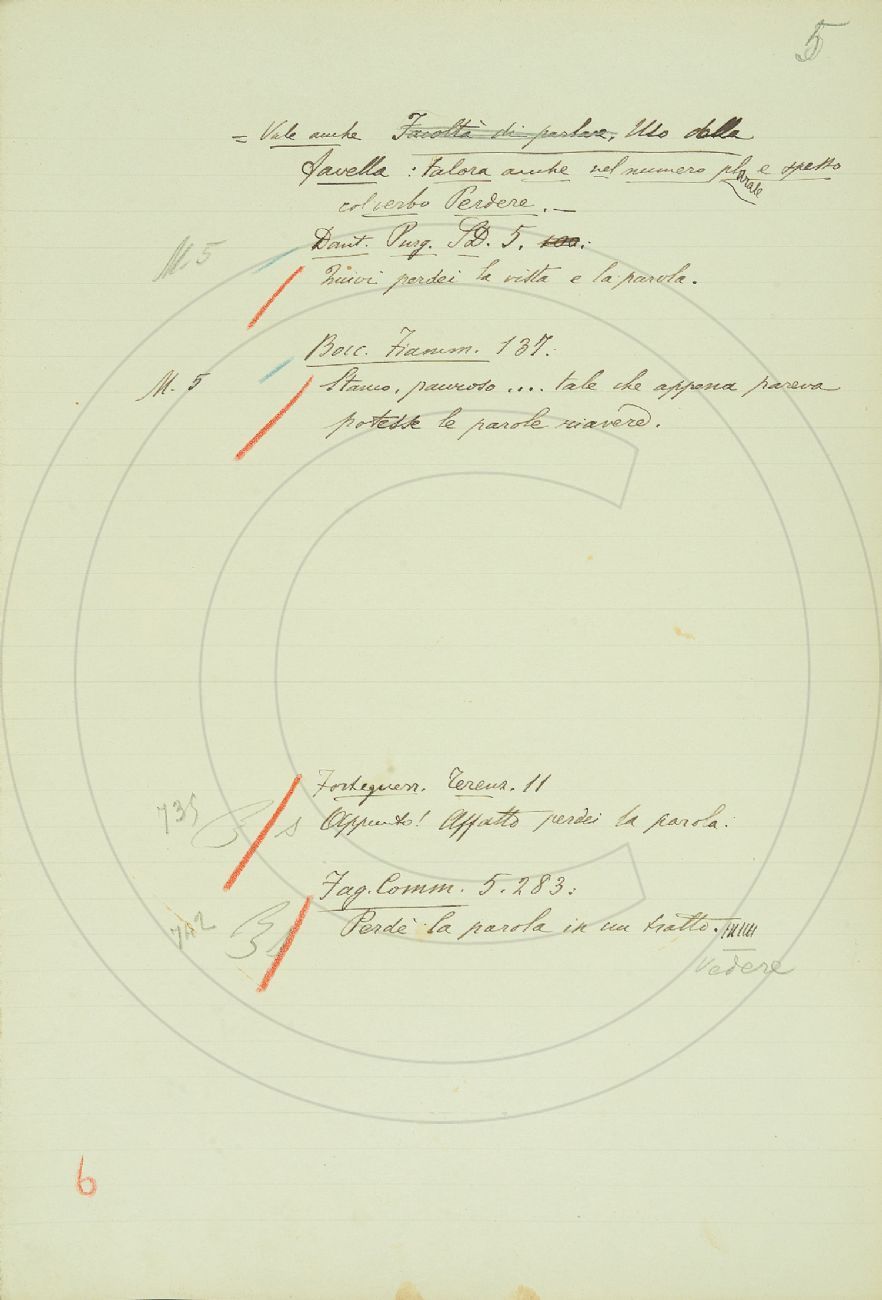 5
= Vale anche Facoltà di parlare, Uso della
favella : talora anche nel numero plurale e spesso
col verbo Perdere. —
M. 5 Dant. Purg. SD. 5.
Quivi perdei la vista e la parola.
Bocc. Fiamm. 137:
M. 5 Stanco, pauroso .... tale che appena pareva
potesse le parole riavere.
Forteguerr. Terenz. 11
735 B s Appunto! Affatto perdei la parola.
Fag. Comm. 5. 283:
742 B Perdè la parola in un tratto.
Vedere
6